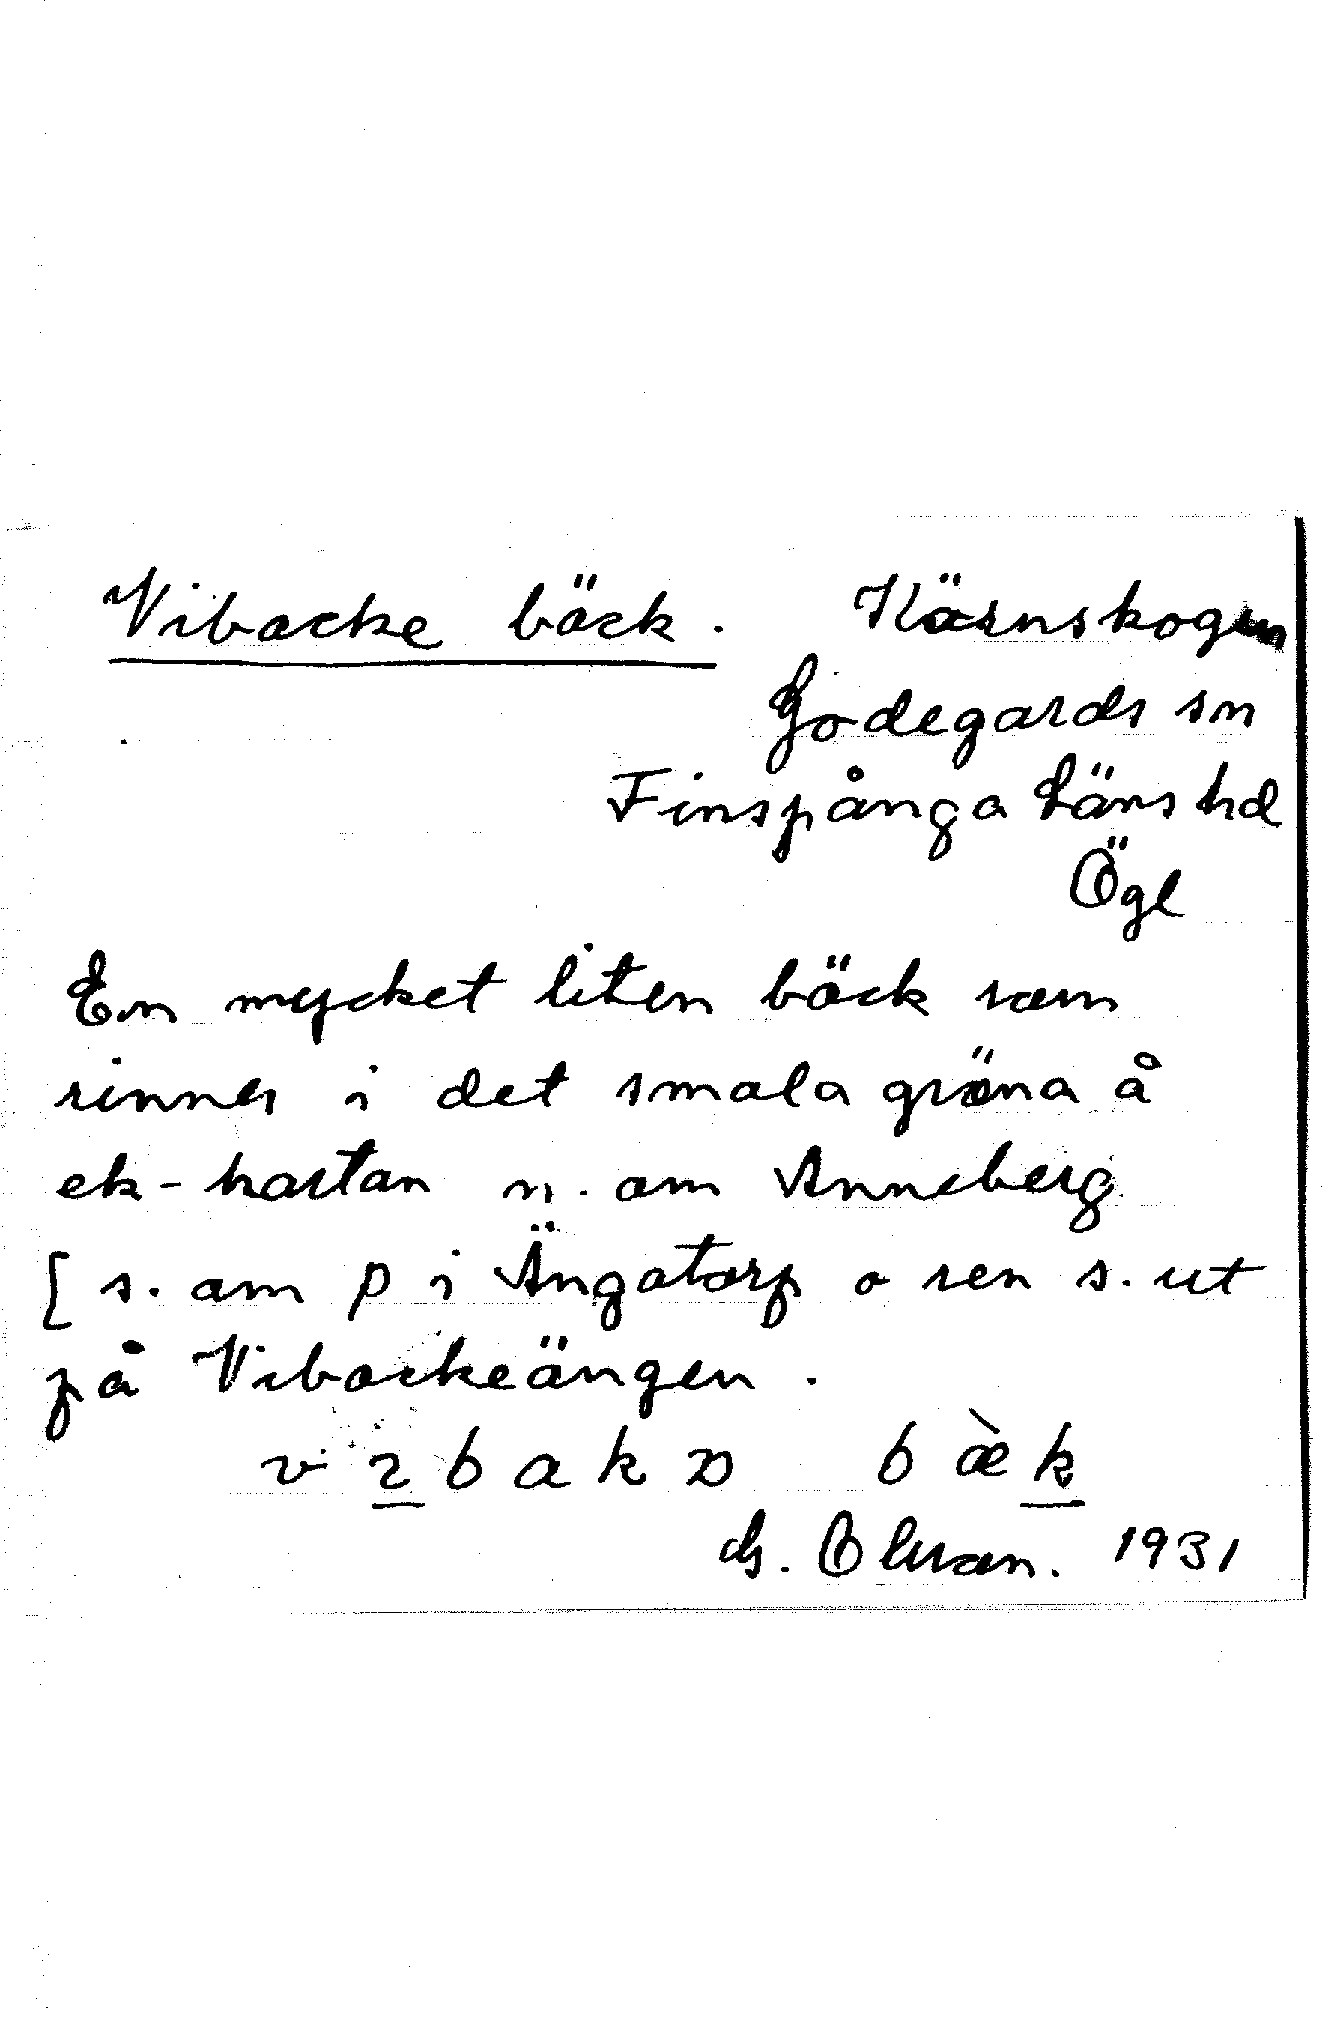 Vibacke bäck. Kärnskogen
Godegards sn
Finspånga Läns hd
Ögl
En mycket liten bäck som
rinner i det smala gröna å
ek-kartan n. om Anneberg
[ s. om p i Ängatorp o ren s. ut
på Vibackeängen.
bæ̀k
G. Olsson. 1931